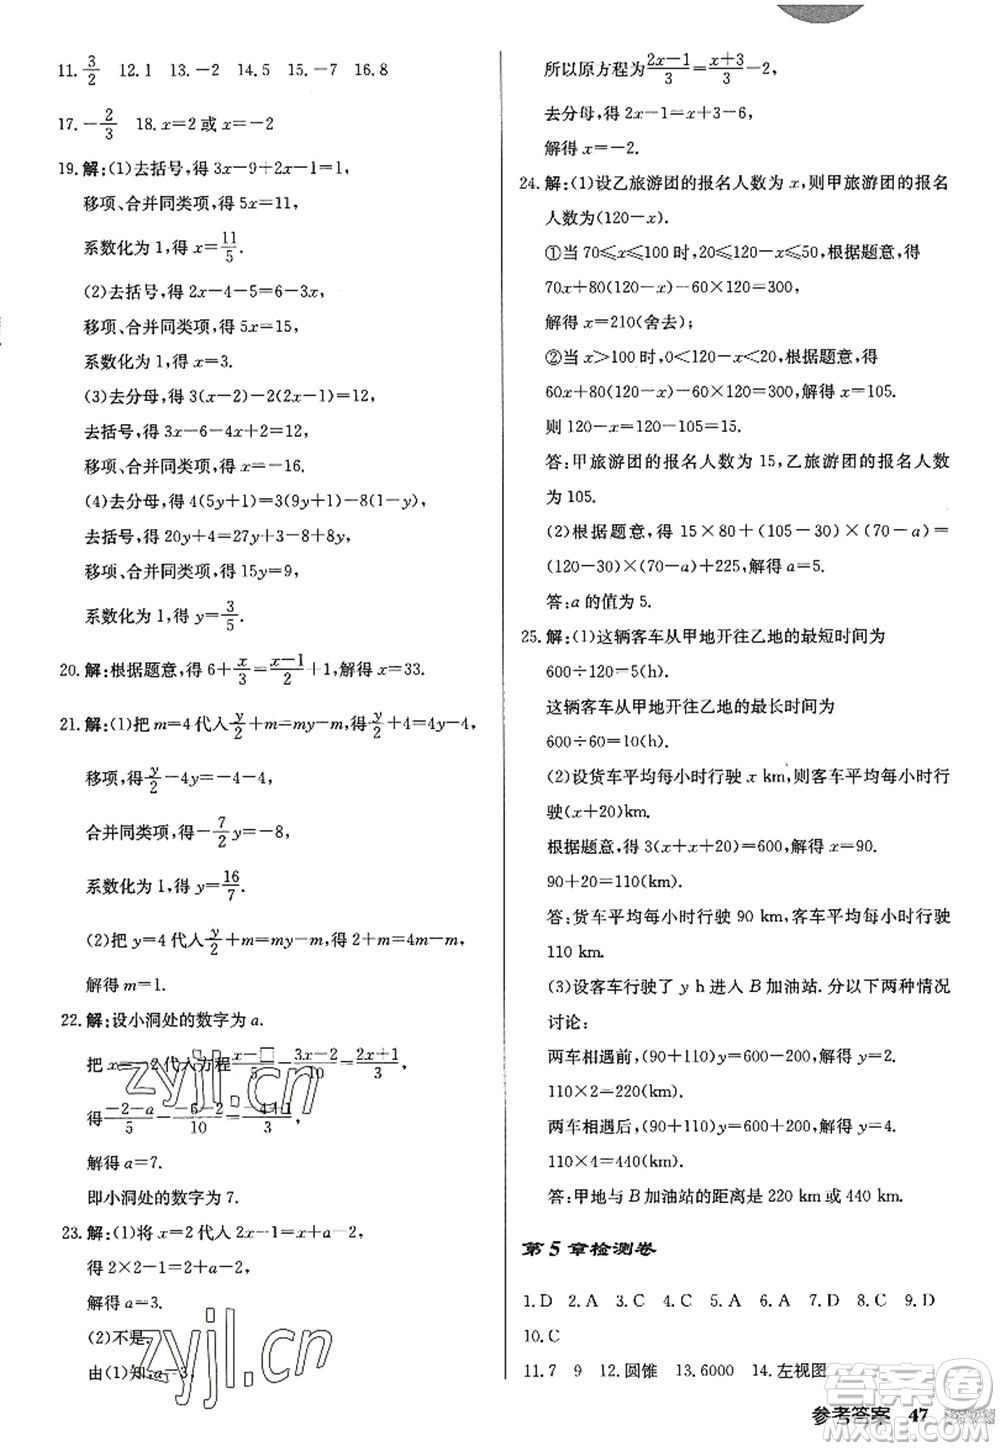 11. 3/2　12.1　13.－2　14.5　15.－7　16.8
17.－2/3　18.x=2 或 x=－2
19.解:(1)去括号,得 3x－9＋2x－1=1,
移项、合并同类项,得 5x=11,
系数化为 1,得 x=11/5.
(2)去括号,得 2x－4－5=6－3x,
移项、合并同类项,得 5x=15,
系数化为 1,得 x=3.
(3)去分母,得 3(x－2)－2(2x－1)=12,
去括号,得 3x－6－4x＋2=12,
移项、合并同类项,得 x=－16.
(4)去分母,得 4(5y＋1)=3(9y＋1)－8(1－y),
去括号,得 20y＋4=27y＋3－8＋8y,
移项、合并同类项,得 15y=9,
系数化为 1,得 y=3/5.
20.解:根据题意,得 6＋x/3=(x－1)/2＋1,解得 x=33.
21.解:(1)把 m=4 代入 y/2＋m=my－m,得 y/2＋4=4y－4,
移项,得 y/2－4y=－4－4,
合并同类项,得－7/2 y=－8,
系数化为 1,得 y=16/7.
(2)把 y=4 代入 y/2＋m=my－m,得 2＋m=4m－m,
解得 m=1.
22.解:设小洞处的数字为 a.
把 x=－2 代入方程 (x－□)/5－(3x－2)/10=(2x＋1)/3,
得 (－2－a)/5－(－6－2)/10=(－4＋1)/3,
解得 a=7.
即小洞处的数字为 7.
23.解:(1)将 x=2 代入 2x－1=x＋a－2,
得 2×2－1=2＋a－2,
解得 a=3.
(2)不是.
由(1)知,a=3,
所以原方程为 (2x－1)/3=(x＋3)/3－2,
去分母,得 2x－1=x＋3－6,
解得 x=－2.
24.解:(1)设乙旅游团的报名人数为 x,则甲旅游团的报名
人数为(120－x).
①当 70≤x≤100 时,20≤120－x≤50,根据题意,得
70x＋80(120－x)－60×120=300,
解得 x=210(舍去);
②当 x>100 时,0<120－x<20,根据题意,得
60x＋80(120－x)－60×120=300,解得 x=105.
则 120－x=120－105=15.
答:甲旅游团的报名人数为 15,乙旅游团的报名人数
为 105.
(2)根据题意,得 15×80＋(105－30)×(70－a)=
(120－30)×(70－a)＋225,解得 a=5.
答:a 的值为 5.
25.解:(1)这辆客车从甲地开往乙地的最短时间为
600÷120=5(h).
这辆客车从甲地开往乙地的最长时间为
600÷60=10(h).
(2)设货车平均每小时行驶 x km,则客车平均每小时行
驶(x＋20)km.
根据题意,得 3(x＋x＋20)=600,解得 x=90.
90＋20=110(km).
答:货车平均每小时行驶 90 km,客车平均每小时行驶
110 km.
(3)设客车行驶了 y h进入 B 加油站.分以下两种情况
讨论:
两车相遇前,(90＋110)y=600－200,解得 y=2.
110×2=220(km).
两车相遇后,(90＋110)y=600＋200,解得 y=4.
110×4=440(km).
答:甲地与 B 加油站的距离是 220 km 或 440 km.
第 5 章检测卷
1.D　2.A　3.C　4.C　5.A　6.A　7.D　8.C　9.D
10.C
11.7　9　12.圆锥　13.6000　14.左视图
参考答案　47
zyjl.cn
zyjl.cn
答案圈